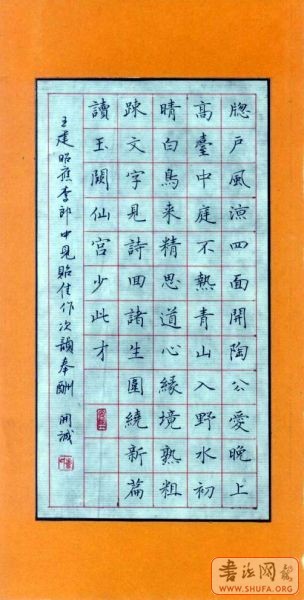 牕戶風涼四面開陶公愛晚上
高臺中庭不熱青山入野水初
晴白鳥来精思道心緣境熟粗
踈文字見詩回諸生圍繞新篇
讀玉闕仙宮少此才
王建昭應李郎中見貽佳作次韻奉酬 開誠
WWW.SHUFA.ORG